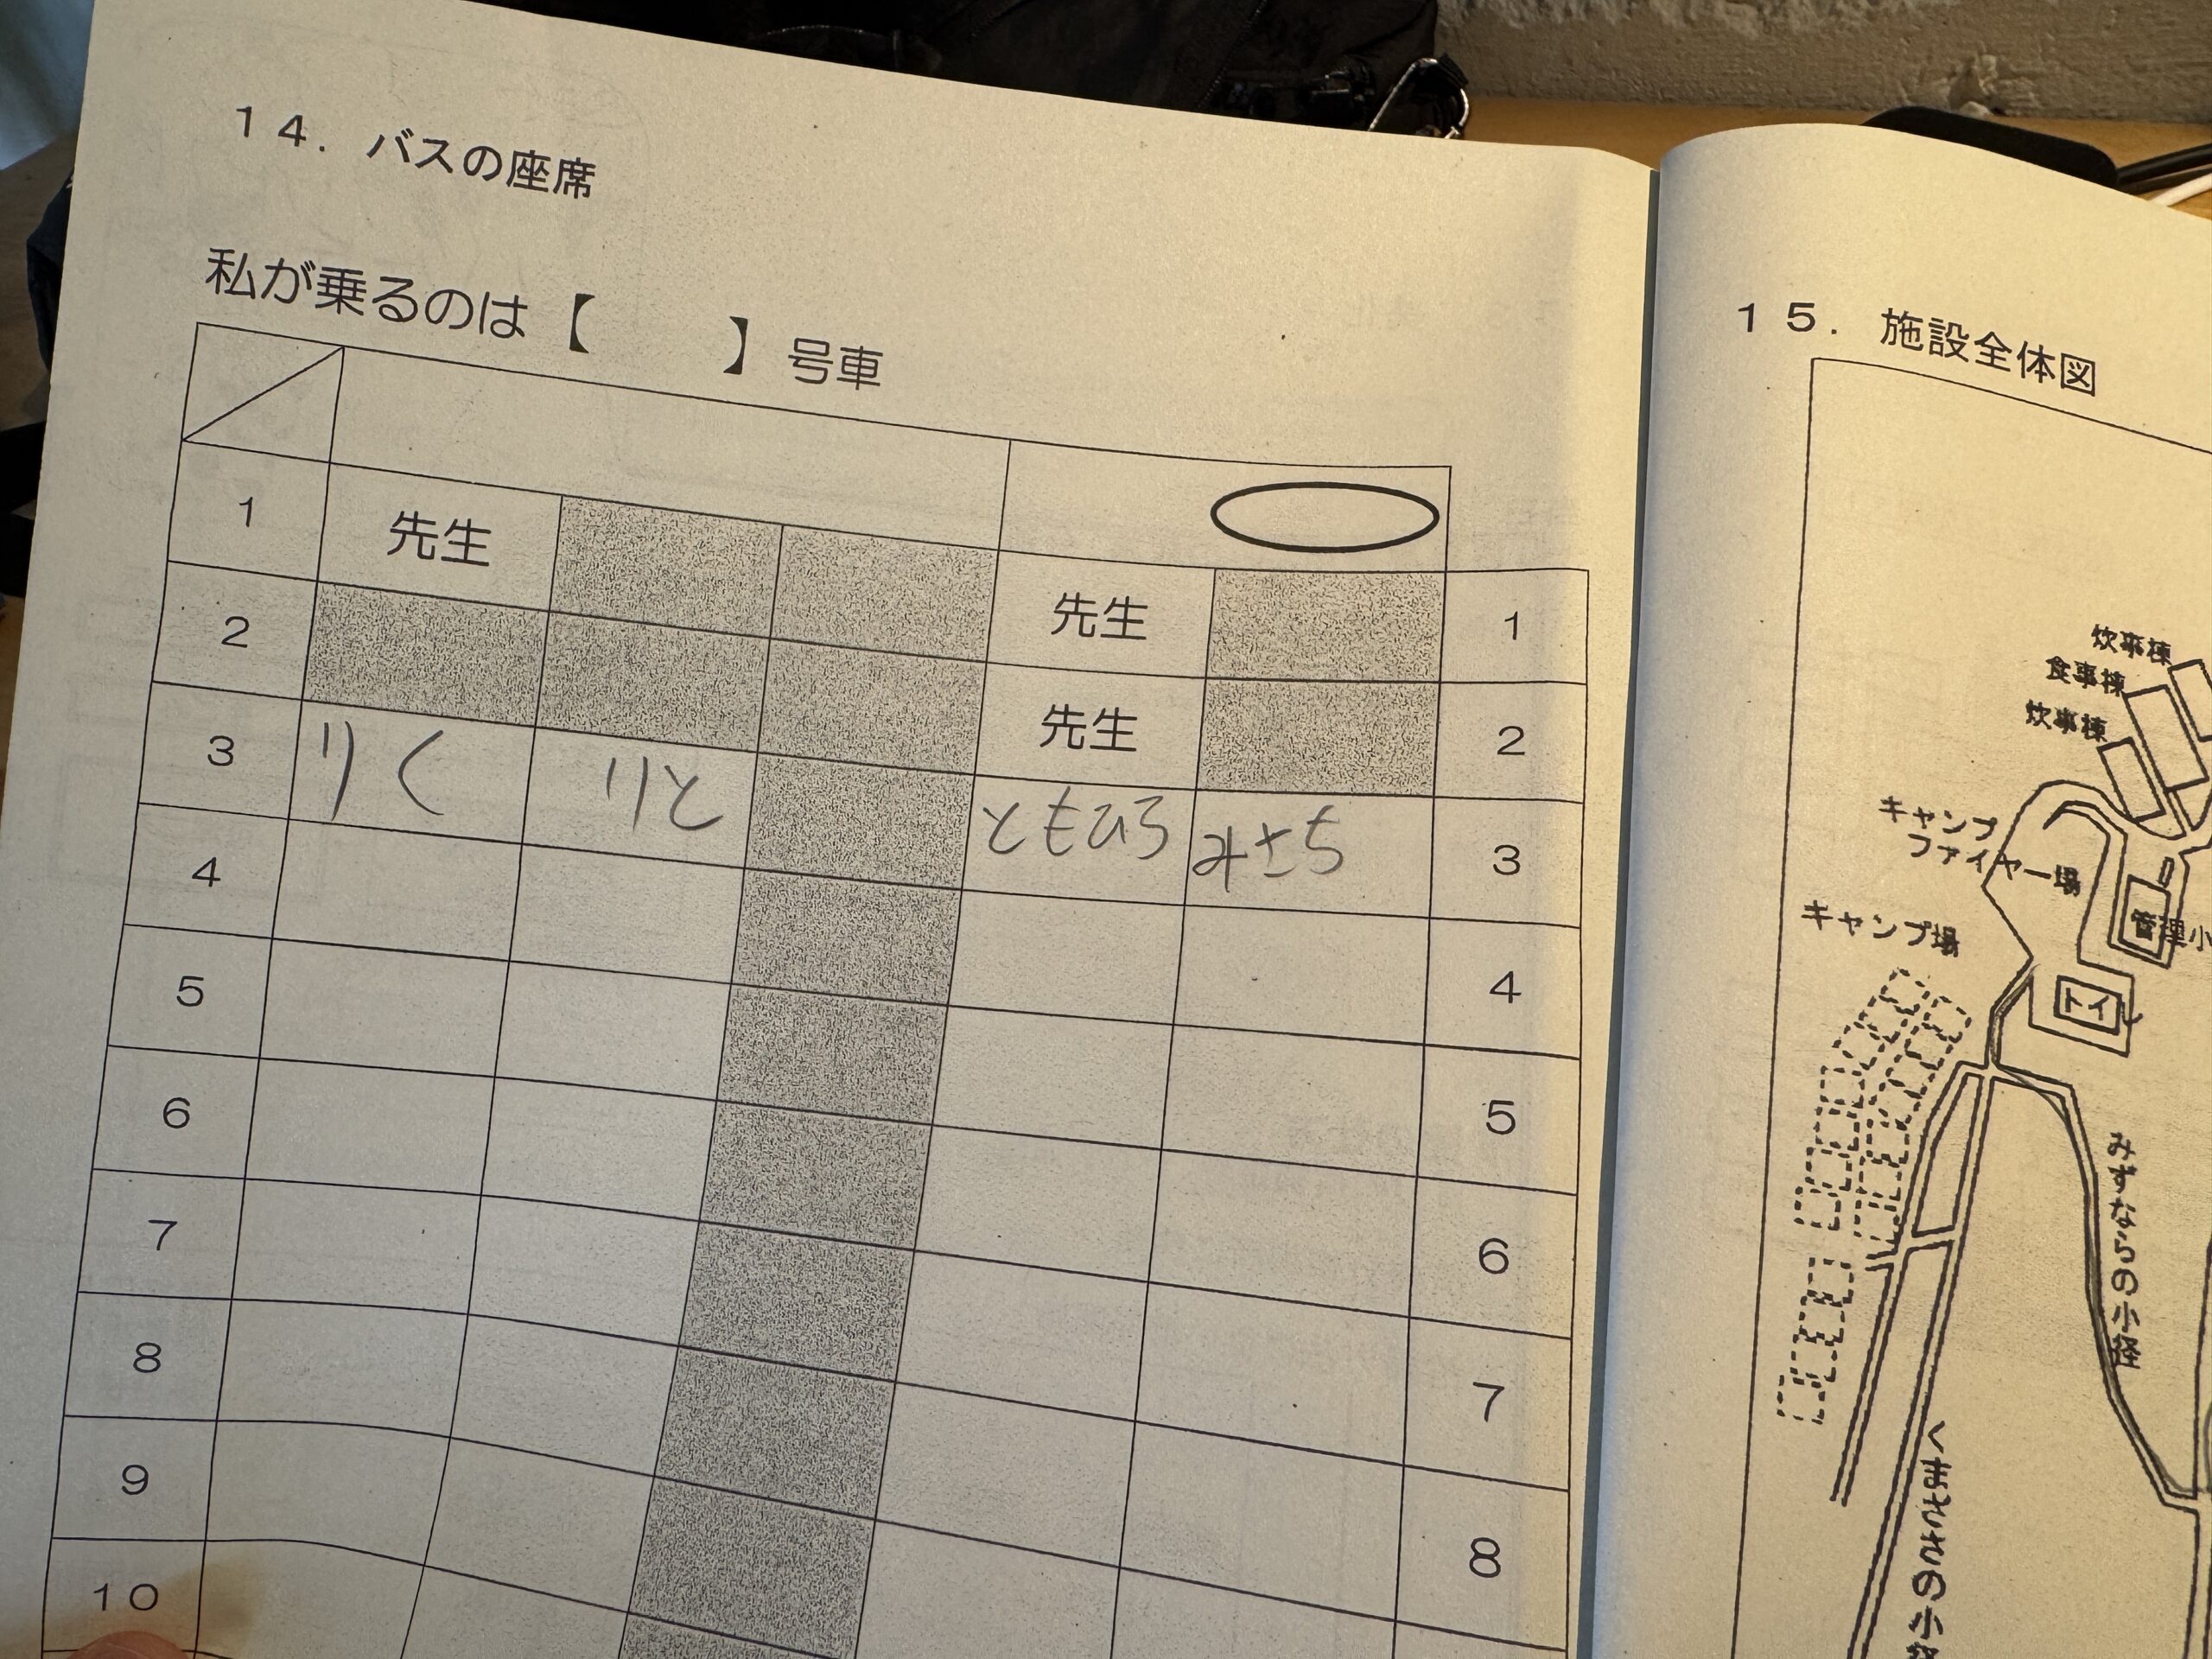 14. バスの座席
私が乗るのは【　　】号車
1 先生 先生 1
2 先生 2
3 りく りと ともひろ みさち 3
4 4
5 5
6 6
7 7
8 8
9
10
15. 施設全体図
炊事棟
食事棟
炊事棟
キャンプ
ファイヤー場
管理小
キャンプ場
トイレ
みずならの小径